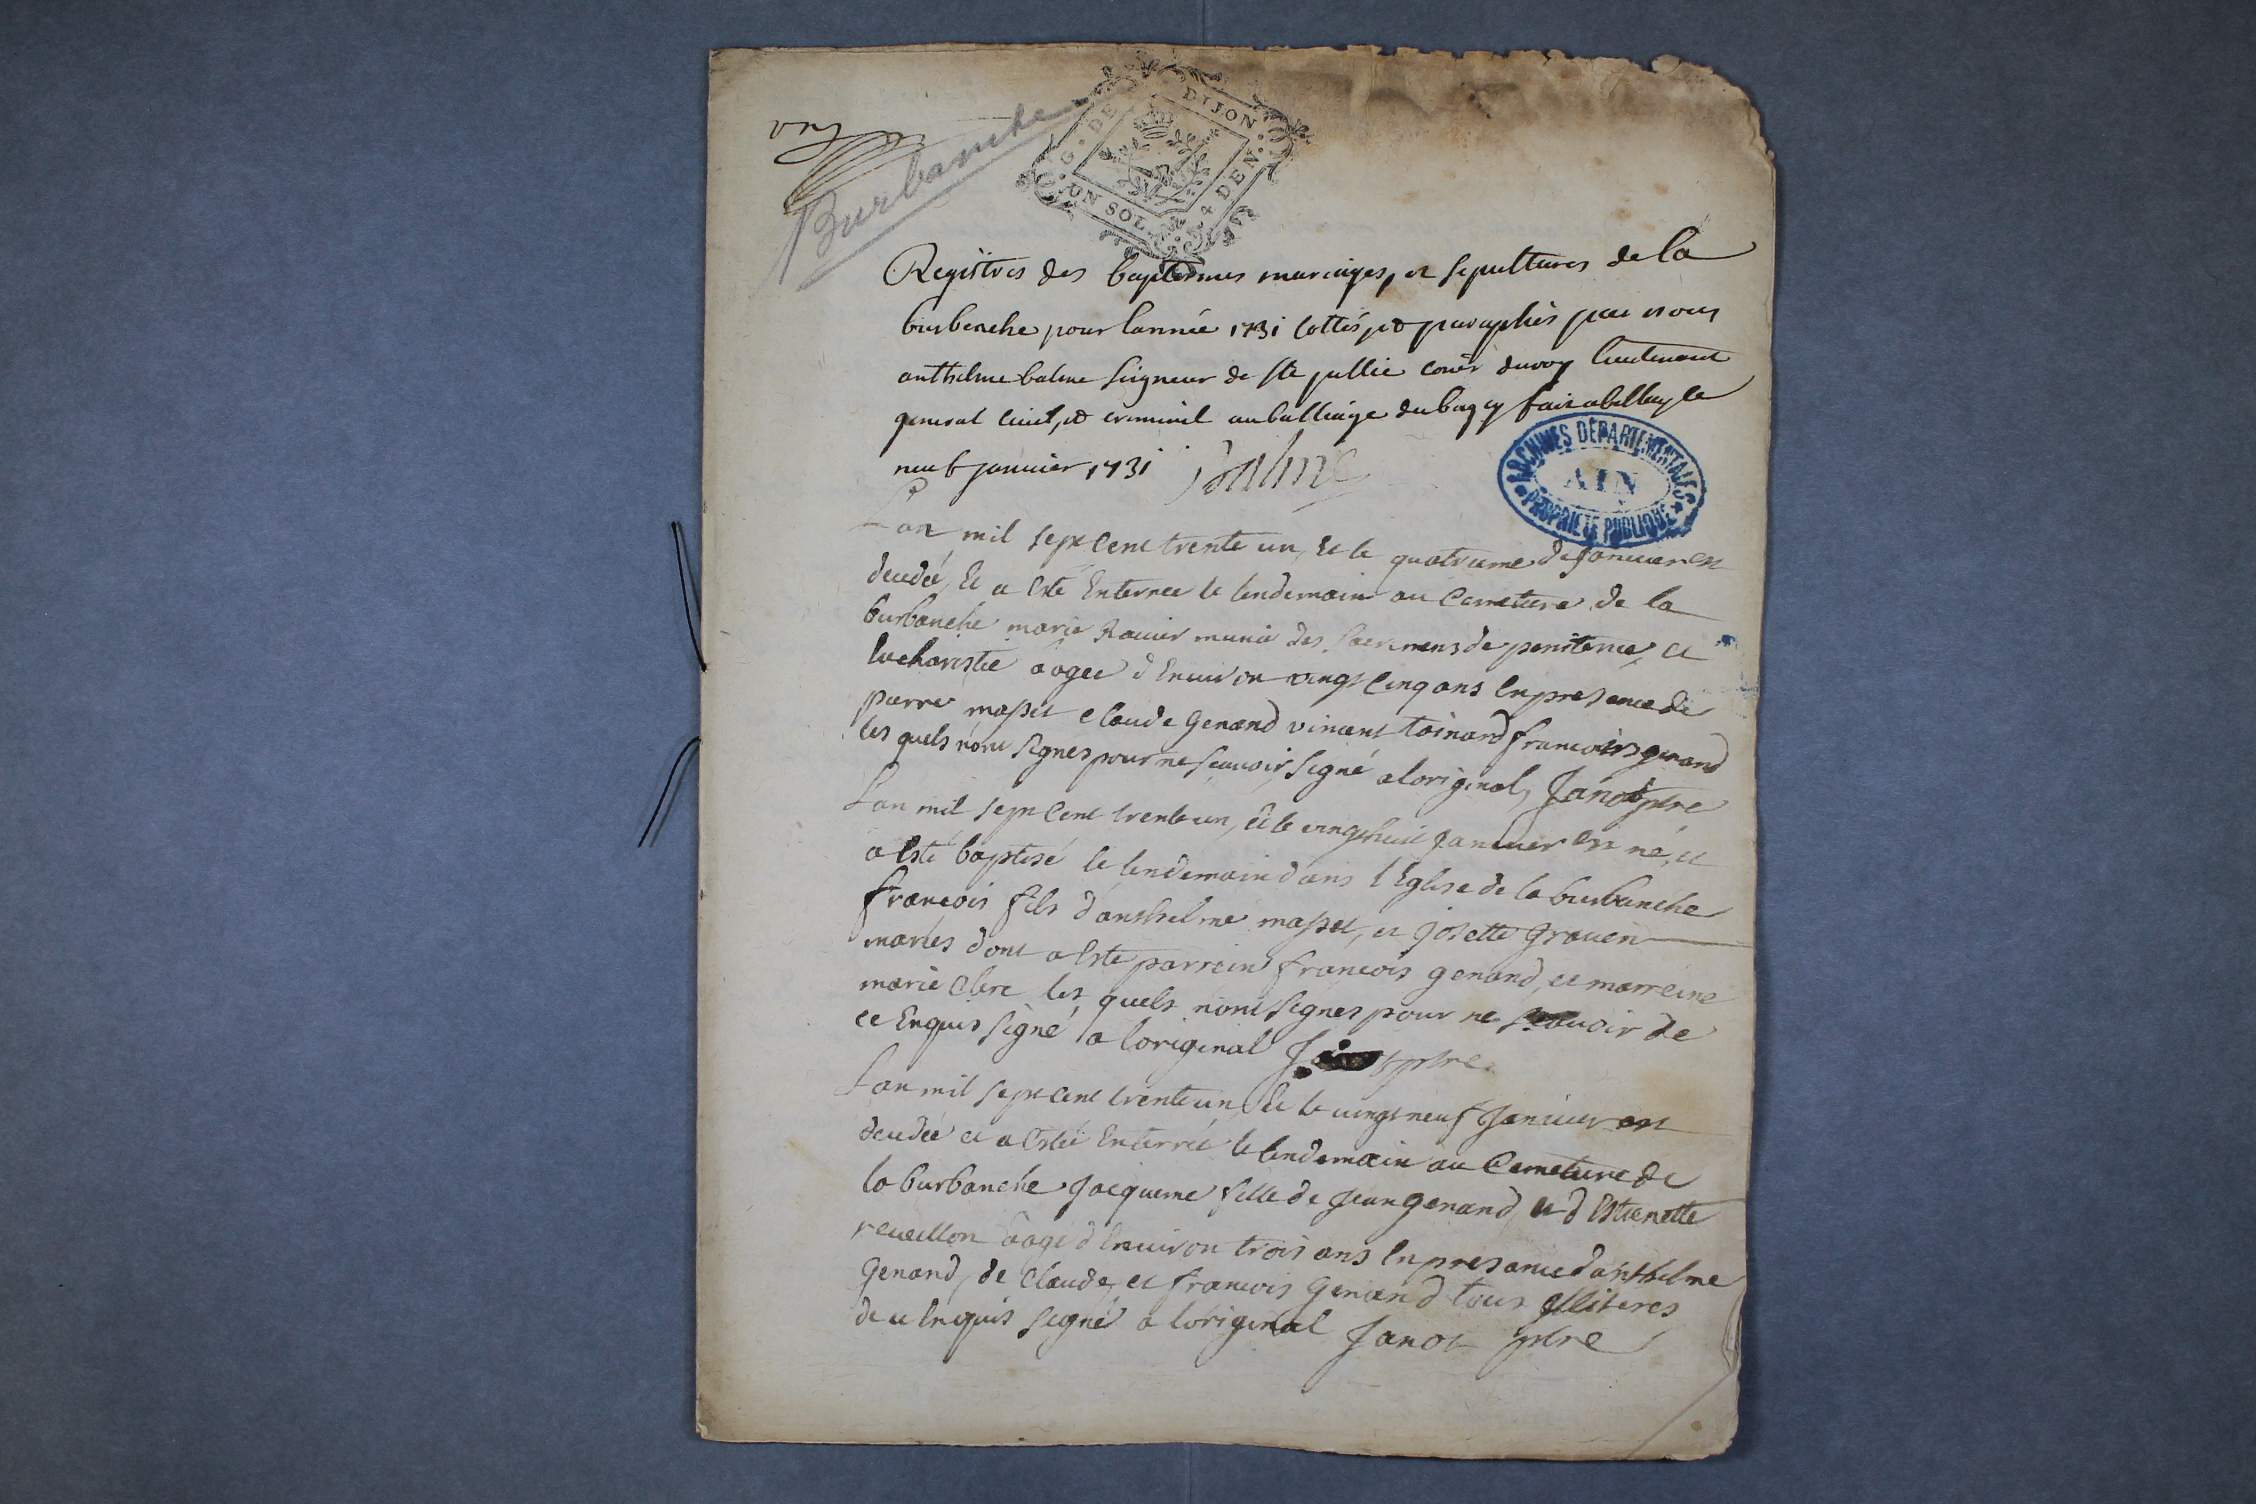 Burbanche
G. DE DIJON
UN SOL. 4 DEN.
Registres des baptemes mariages, et sepultures de la
burbenche pour lannée 1731 cottés, et paraphés par nous
anthelme balme seigneur de ste jullie coner du roy lieutenant
general civil, et criminel au balliage du bugey fait a belley le
neuf janvier 1731 Balme
ARCHIVES DÉPARTEMENTALES
AIN
PROPRIÉTÉ PUBLIQUE
Lan mil sept cent trente un, et le quatrieme de janvier est
decedée, et a esté enterree le lendemain au cemetiere de la
burbanche marie munie des sacremens de penitence, et
eucharistie aagee d'environ vingt cinq ans en presence de
pierre masset claude genand vincent toinard francois genand
les quels n'ont signes pour ne scavoir, signé a loriginal, Janot ptre
Lan mil sept cent trente un, et le vingt huit janvier est né, et
a esté baptisé le lendemain dans l'Eglise de la burbanche
françois fils d'anthelme masset, et josette graven
mariés dont a esté parrein françois genand, et marreine
marie clerc les quels n'ont signes pour ne scavoir de
ce enquis signé a loriginal Janot ptre
Lan mil sept cent trente un, et le vingt neuf janvier est
decedée et a estée enterrée le lendemain au cemetiere de
la burbanche jacqueme fille de jean genand et d'estienette
reveillon aagé d'environ trois ans en presance d'anthelme
Genand, de claude, et francois genand tous illiteres
de ce enquis signé a loriginal Janot ptre